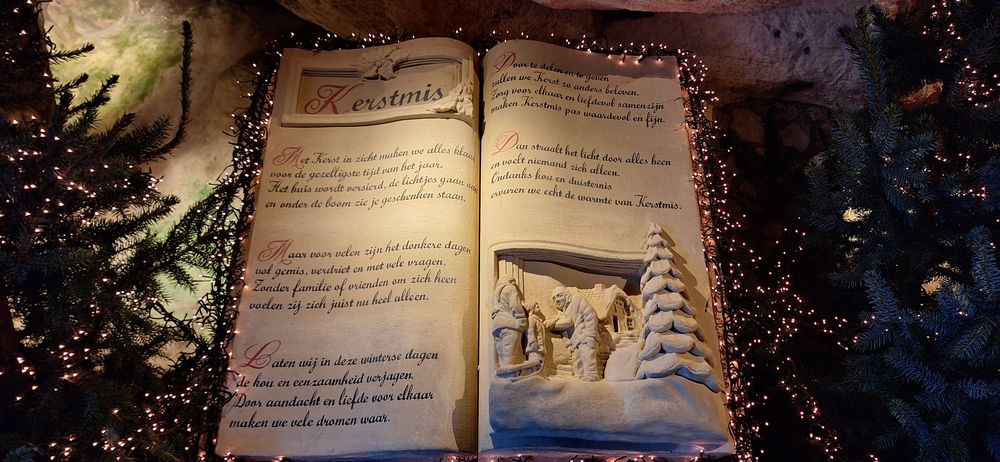 Kerstmis
Met Kerst in zicht maken we alles klaar
voor de gezelligste tijd van het jaar.
Het huis wordt versierd, de lichtjes gaan aan
en onder de boom zie je geschenken staan.
Maar voor velen zijn het donkere dagen
vol gemis, verdriet en met vele vragen.
Zonder familie of vrienden om zich heen
voelen zij zich juist nu heel alleen.
Laten wij in deze winterse dagen
de kou en eenzaamheid verjagen.
Door aandacht en liefde voor elkaar
maken we vele dromen waar.
Door te delen en te geven
zullen we Kerst zo anders beleven.
Zorg voor elkaar en liefdevol samenzijn
maken Kerstmis pas waardevol en fijn.
Dan straalt het licht door alles heen
en voelt niemand zich alleen.
Ondanks kou en duisternis
ervaren we echt de warmte van Kerstmis.